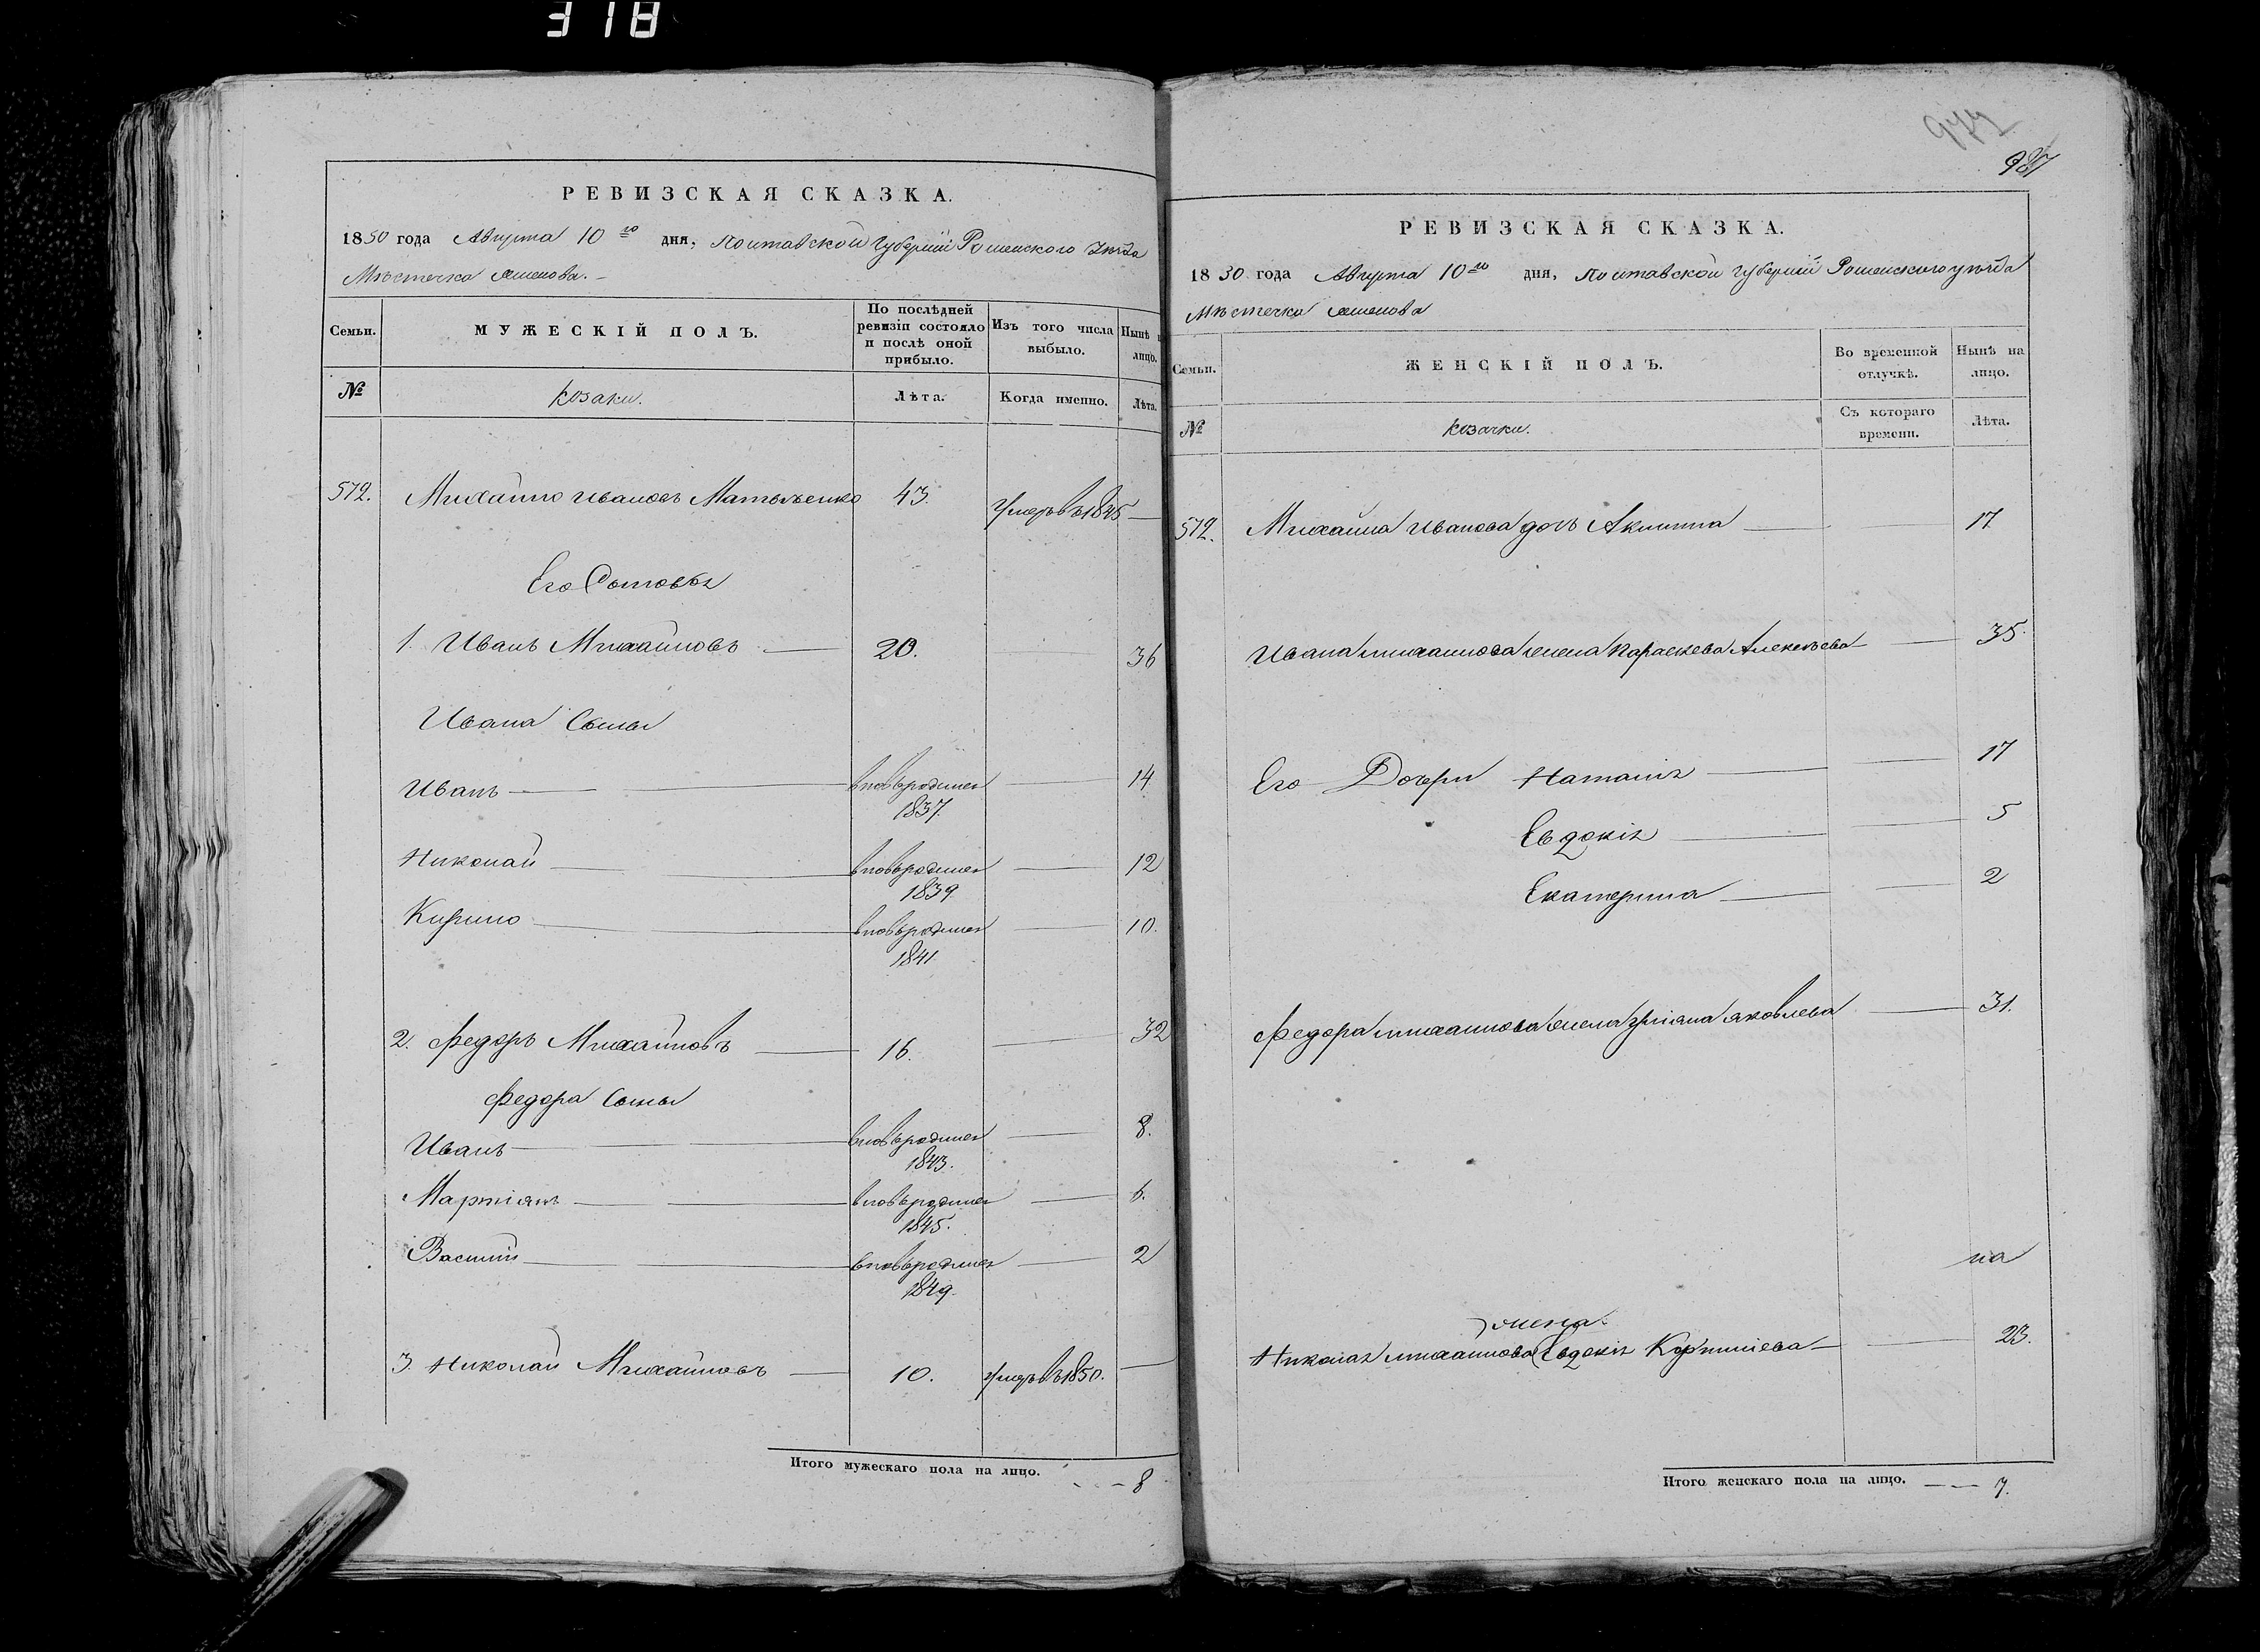 318
РЕВИЗСКАЯ СКАЗКА.
1850 года Августа 10го дня, Полтавской Губернии Роменского Уезда
Местечка Смелова.
Семьи.
МУЖЕСКІЙ ПОЛЪ.
По послѣдней ревизіи состояло и послѣ оной прибыло.
Изъ того числа выбыло.
Нынѣ н лицо.
№
Козаки.
Лѣта.
Когда именно.
Лѣта.
572. Михайло Ивановъ 43 Умеръ въ 1845 —
Его Сыновья
1. Иванъ Михайловъ — 20. 36
Ивана Сыны
Иванъ — вновьродился 1837. — 14.
Николай — вновьродился 1839 — 12
Кирило — вновьродился 1841 — 10.
2. Федоръ Михайловъ — 16. — 32
Федора Сыны
Иванъ — вновьродился 1843. — 8.
Мартіянъ — вновьродился 1845. — 6.
Василій — вновьродился 1849. — 2
3. Николай Михайловъ — 10. умеръ въ 1850. —
Итого мужескаго пола на лицо. - - - 8
987
РЕВИЗСКАЯ СКАЗКА.
1850 года Августа 10го дня, Полтавской губерніи Роменского уѣзда
Мѣстечка Смелова
Семьи.
ЖЕНСКІЙ ПОЛЪ.
Во временной отлучкѣ.
Нынѣ на лицо.
№
Козачки.
Съ котораго времени.
Лѣта.
572. Михайла Иванова дочь Акилина — 17
Ивана михайлова жена Параскева Алексѣева — 35.
Его Дочери Наталія — 17
Евдокія — 5
Екатерина — 2
Федора михайлова жена Уліяна Яковлева — 31.
на
жена
Николая михайлова Евдокія — 23.
Итого женскаго пола на лицо. — — 7.